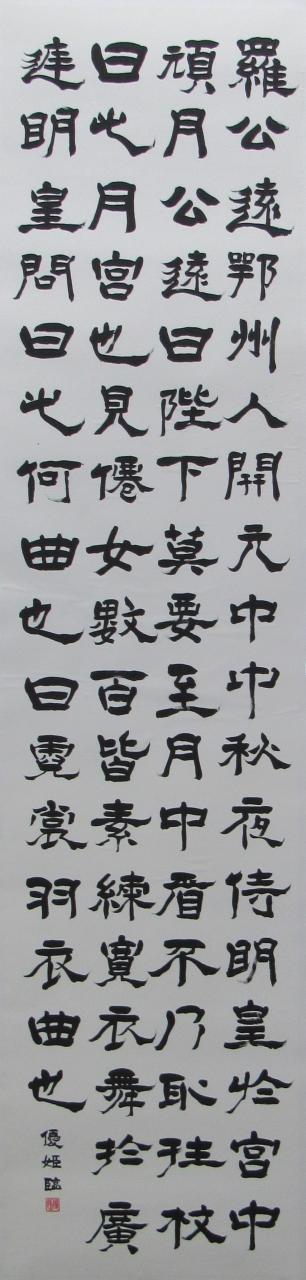 羅公遠鄂州人開元中中秋夜侍明皇於宮中
頑月公遠曰陛下莫要至月中看不乃取拄杖
曰此月宮也見僊女數百皆素練寬衣舞於廣
庭明皇問曰此何曲也曰霓裳羽衣曲也
優姬臨